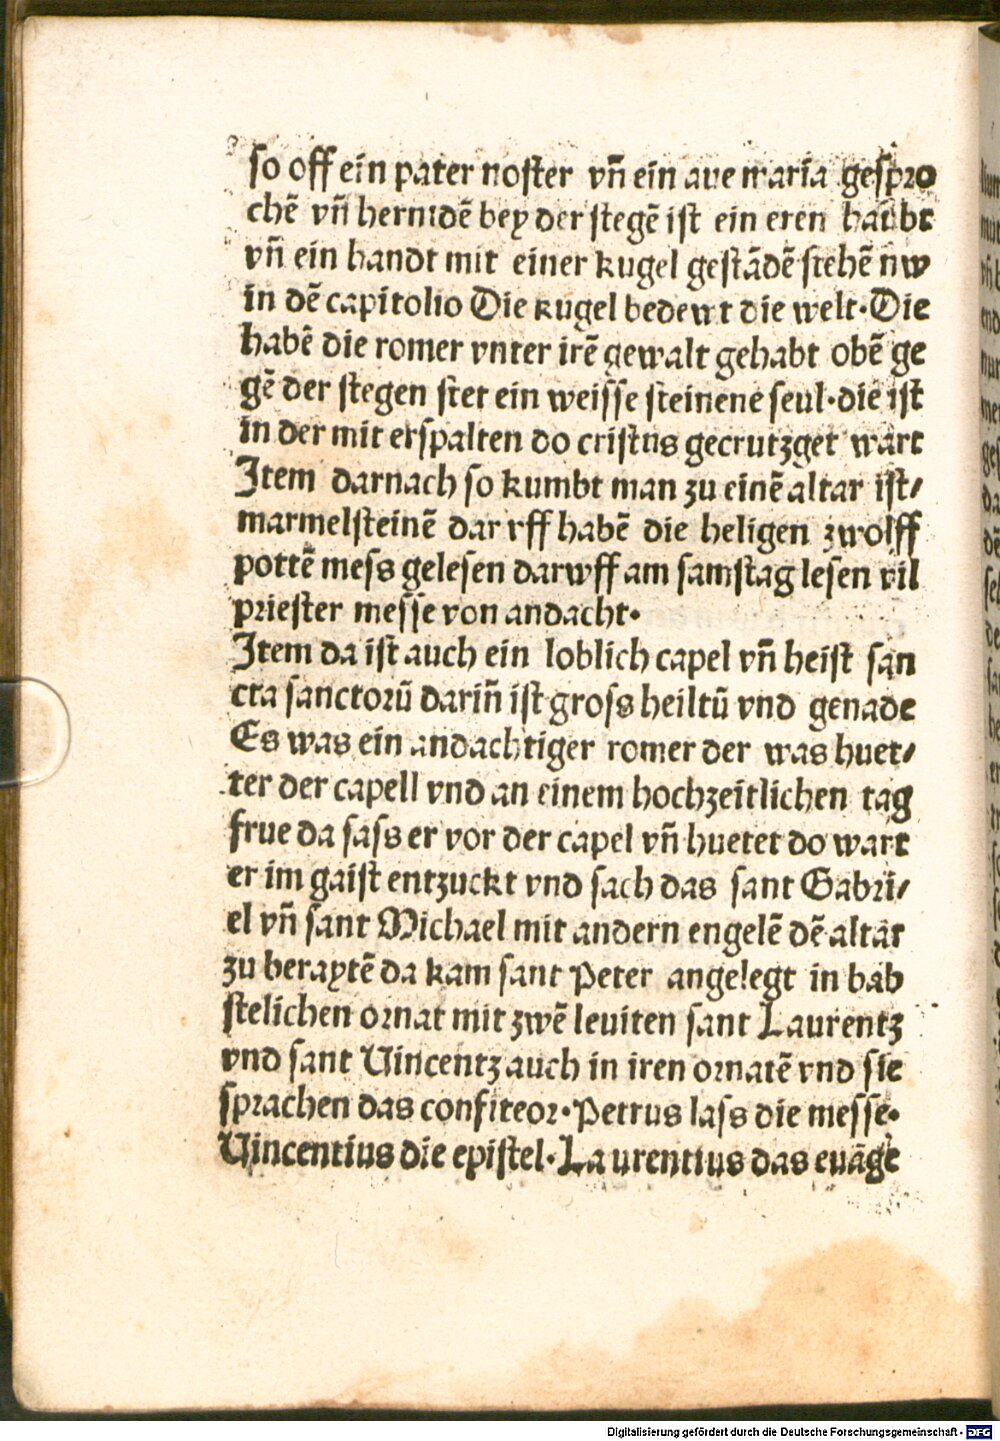 so off ein pater noster vn̄ ein ave maria gespro
chē vn̄ hernidē bey der stegē ist ein eren haubt
vn̄ ein handt mit einer kugel gestādē stehē nw
in dē capitolio Die kugel bedewt die welt·Die
habē die romer vnter irē gewalt gehabt obē ge
gē der stegen stet ein weisse steinene seul·die ist
in der mit erspalten do cristus gecrutzget wart
Item darnach so kumbt man zu einē altar ist/
marmelsteinē dar vff habē die heligen zwolff
pottē mess gelesen darwff am samstag lesen vil
priester messe von andacht·
Item da ist auch ein loblich capel vn̄ heist san
cta sanctorū darin̄ ist gross heiltū vnd genade
Es was ein andachtiger romer der was huet/
ter der capell vnd an einem hochzeitlichen tag
frue da sass er vor der capel vn̄ huetet do wart
er im gaist entzuckt vnd sach das sant Gabri/
el vn̄ sant Michael mit andern engelē dē altar
zu beraytē da kam sant Peter angelegt in bab
stelichen ornat mit zwē leuiten sant Laurentz
vnd sant Vincentz auch in iren ornatē vnd sie
sprachen das confiteor·Petrus lass die messe·
Vincentius die epistel·Laurentius das euāge
Digitalisierung gefördert durch die Deutsche Forschungsgemeinschaft - DFG